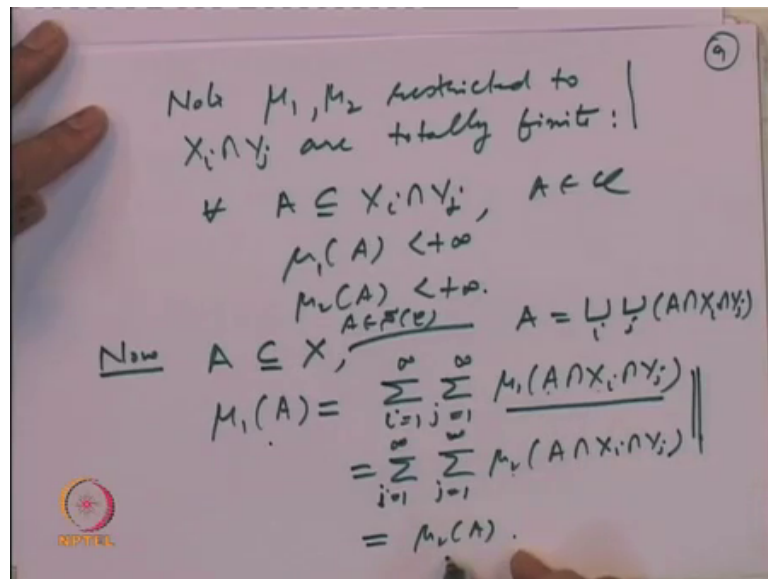 9
Note μ₁, μ₂ restricted to
Xᵢ∩Yⱼ are totally finite:
∀ A ⊆ Xᵢ∩Yⱼ, A∈𝒞
μ₁(A) < +∞
μ₂(A) < +∞.
Now A ⊆ X, A∈S(𝒞) A = ⋃ᵢ ⋃ⱼ (A∩Xᵢ∩Yⱼ)
μ₁(A) = ∑_{i=1}^{∞} ∑_{j=1}^{∞} μ₁(A∩Xᵢ∩Yⱼ)
= ∑_{i=1}^{∞} ∑_{j=1}^{∞} μ₂(A∩Xᵢ∩Yⱼ)
= μ₂(A).
NPTEL